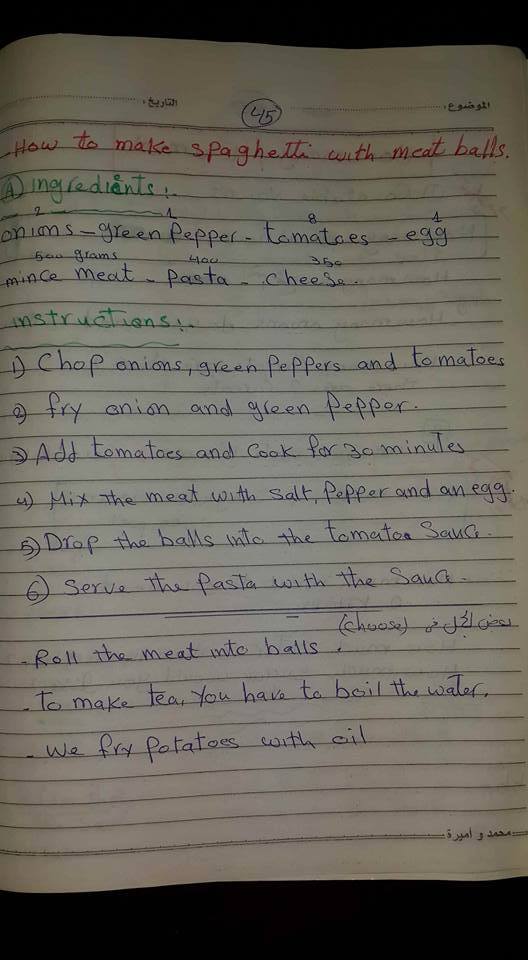 الموضوع: التاريخ:
45
-How to make spaghetti with meat balls.
A) ingredients:-
2 1 8 1
onions - green Pepper - tomatoes - egg
500 grams 400 350
mince meat - Pasta - cheese.
instructions:-
1) Chop onions, green Peppers and tomatoes
2) fry onion and green Pepper.
3) Add tomatoes and Cook for 30 minutes
4) Mix the meat with salt, Pepper and an egg.
5) Drop the balls into the tomatoe Sauc.
6) Serve the Pasta with the Sauc.
بعض الجمل في (choose)
- Roll the meat into balls.
- To make tea, You have to boil the water.
- We fry Potatoes with oil
محمد و أميرة